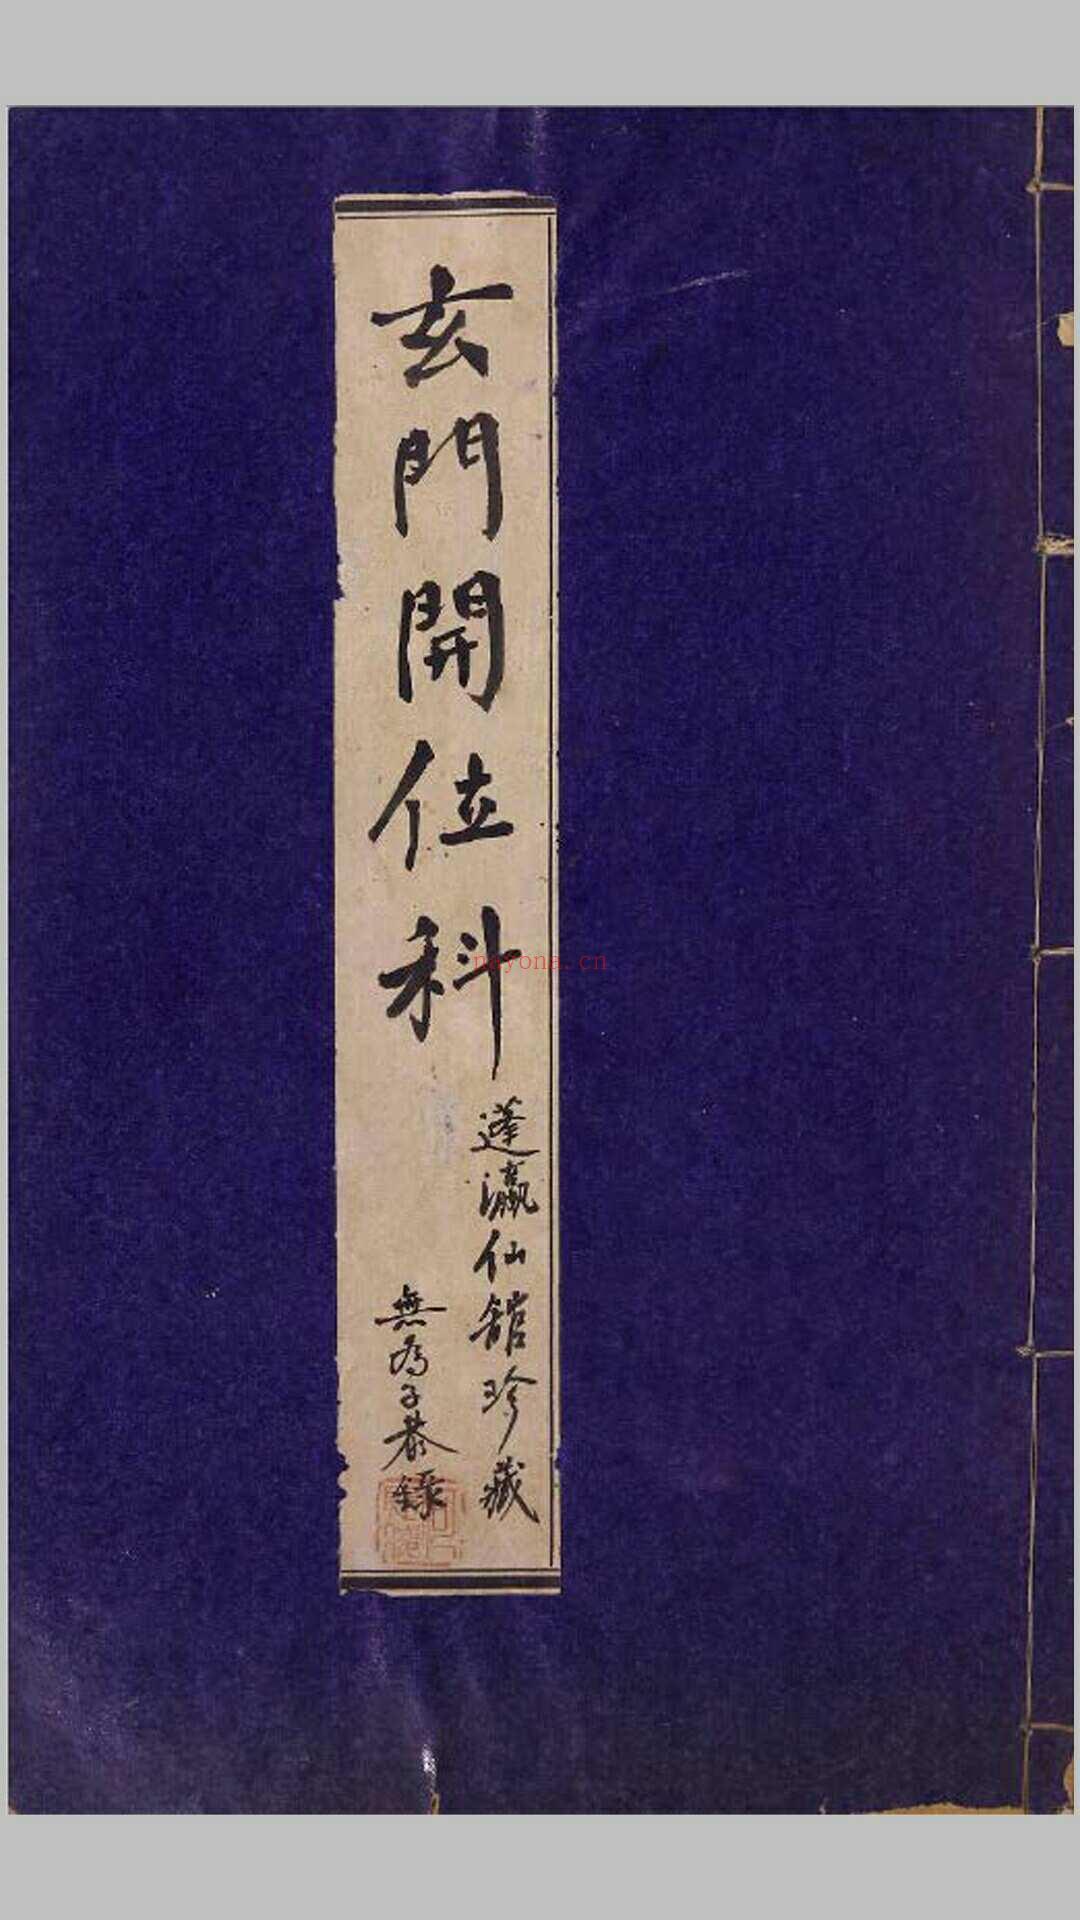 玄門開位科
蓬瀛仙館珍藏
無為子恭錄
nayona.cn